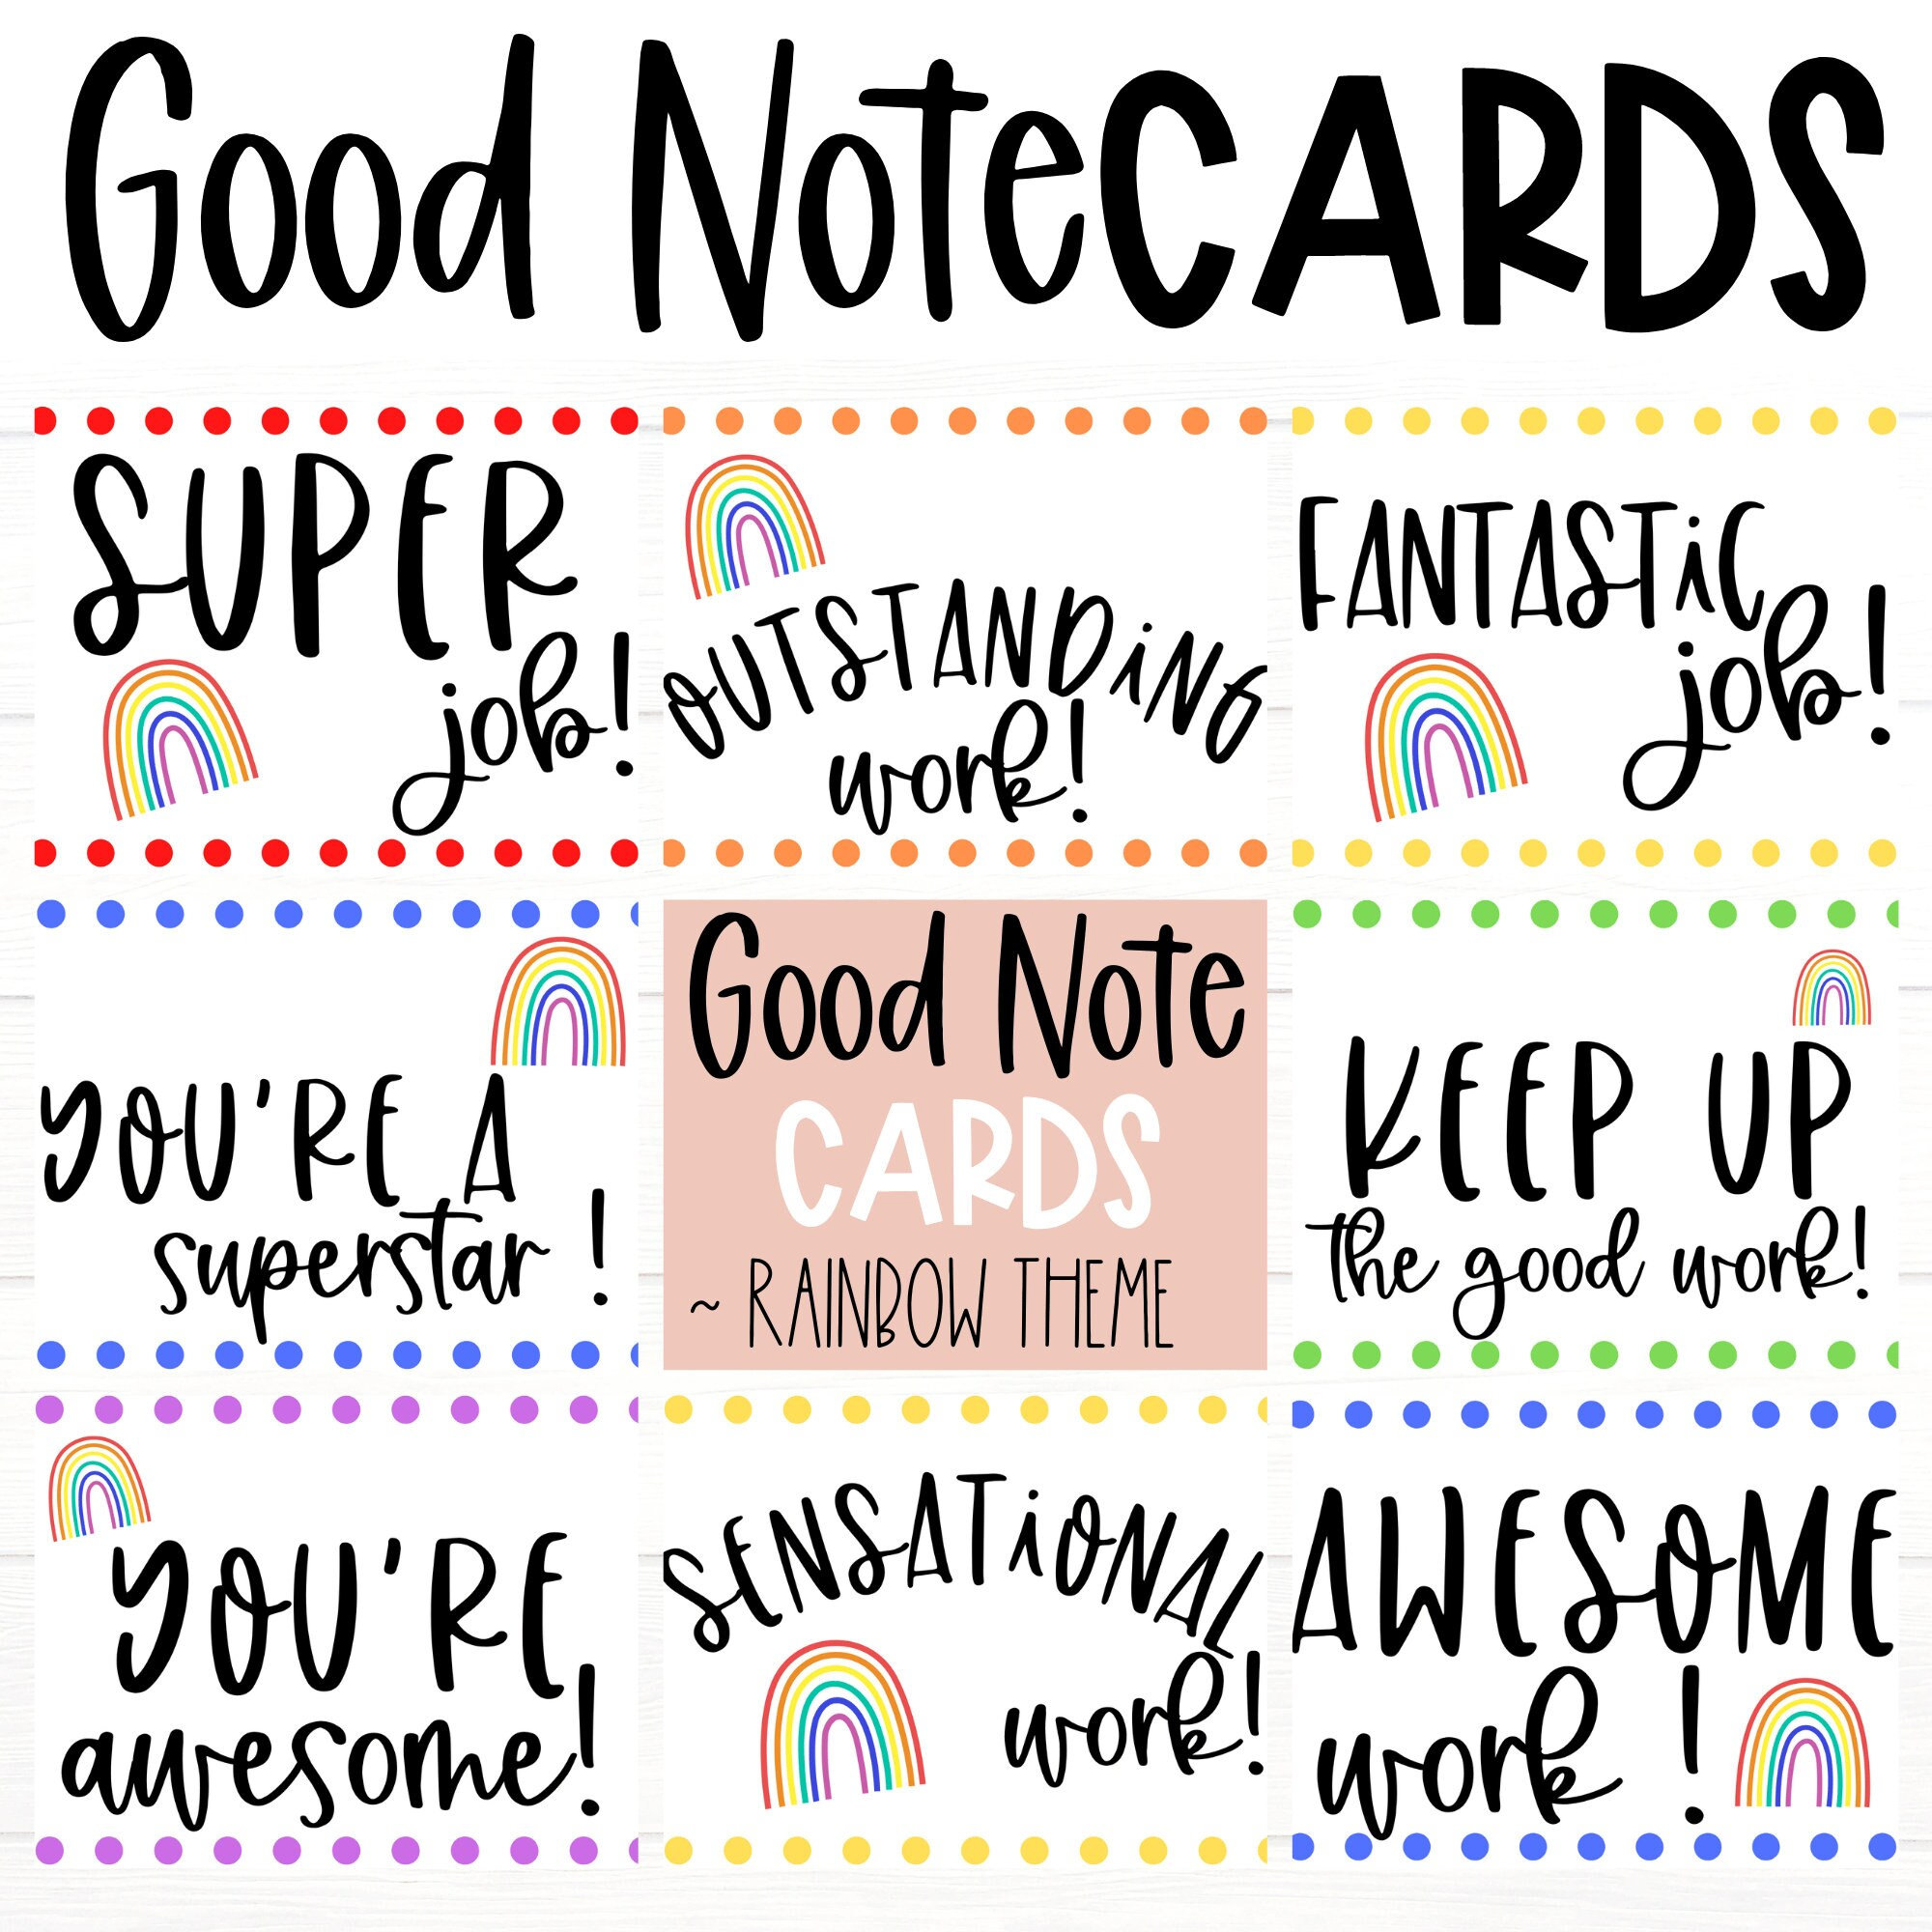 Good NoteCARDS
SUPER
job!
OUTSTANDiNG
work!
FANTASTiC
job!
YOU'RE A
superstar!
Good Note
CARDS
~ RAINBOW THEME
KEEP UP
the good work!
YOU'RE
awesome!
SENSATiONAL
work!
AWESOME
work!